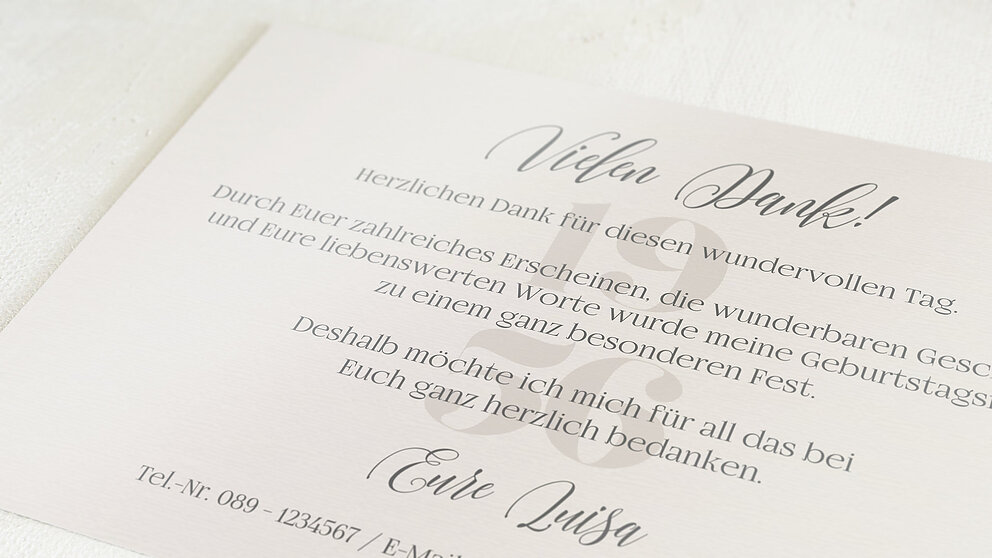 Vielen Dank!
Herzlichen Dank für diesen wundervollen Tag.
Durch Euer zahlreiches Erscheinen, die wunderbaren
und Eure liebenswerten Worte wurde meine
zu einem ganz besonderen Fest.
Deshalb möchte ich mich für all das bei
Euch ganz herzlich bedanken.
19
56
Eure Luisa
Tel.-Nr. 089 - 1234567 /